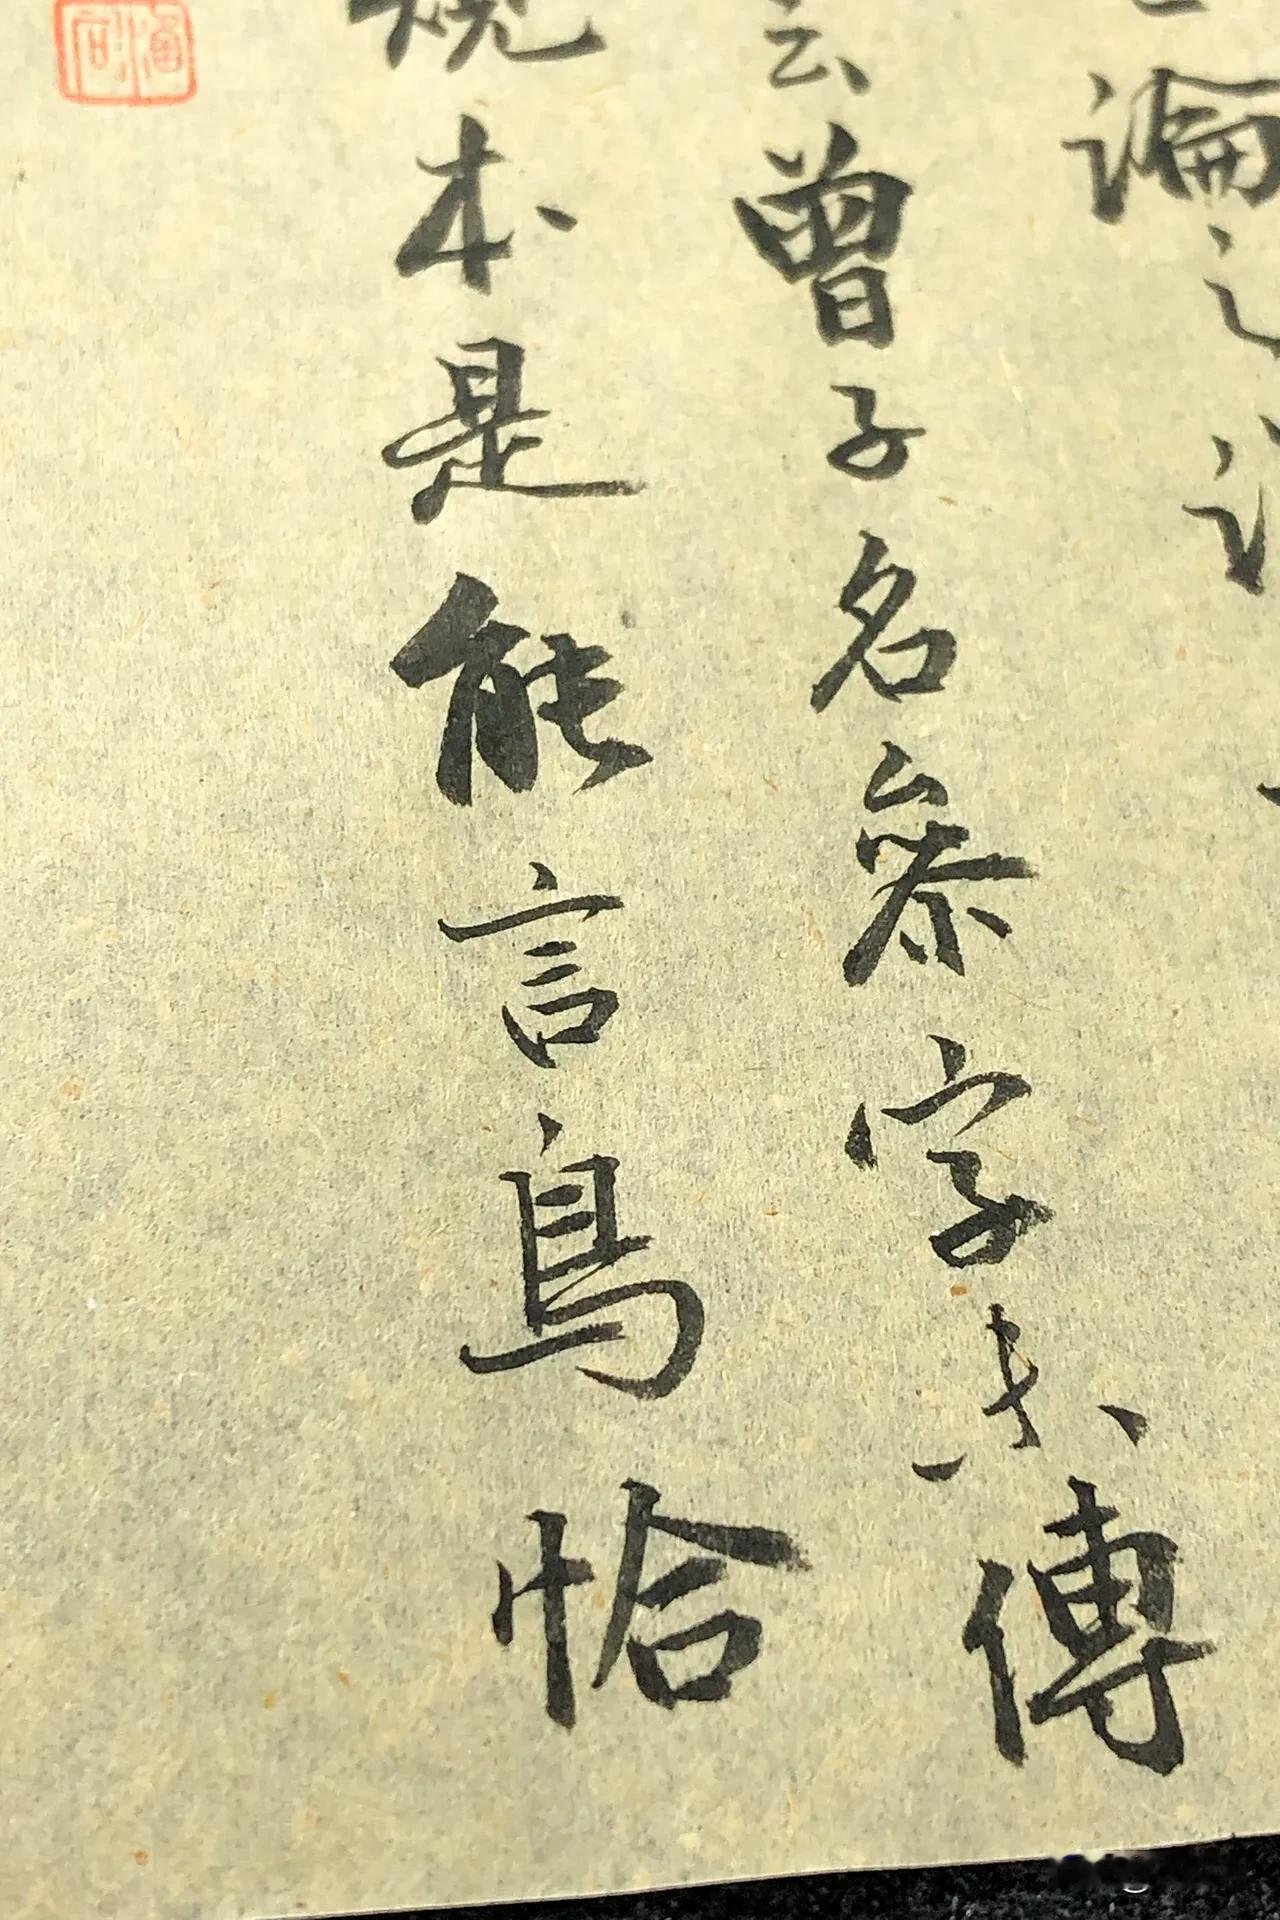 論之
云曾子名參字傳
本是能言鳥恰